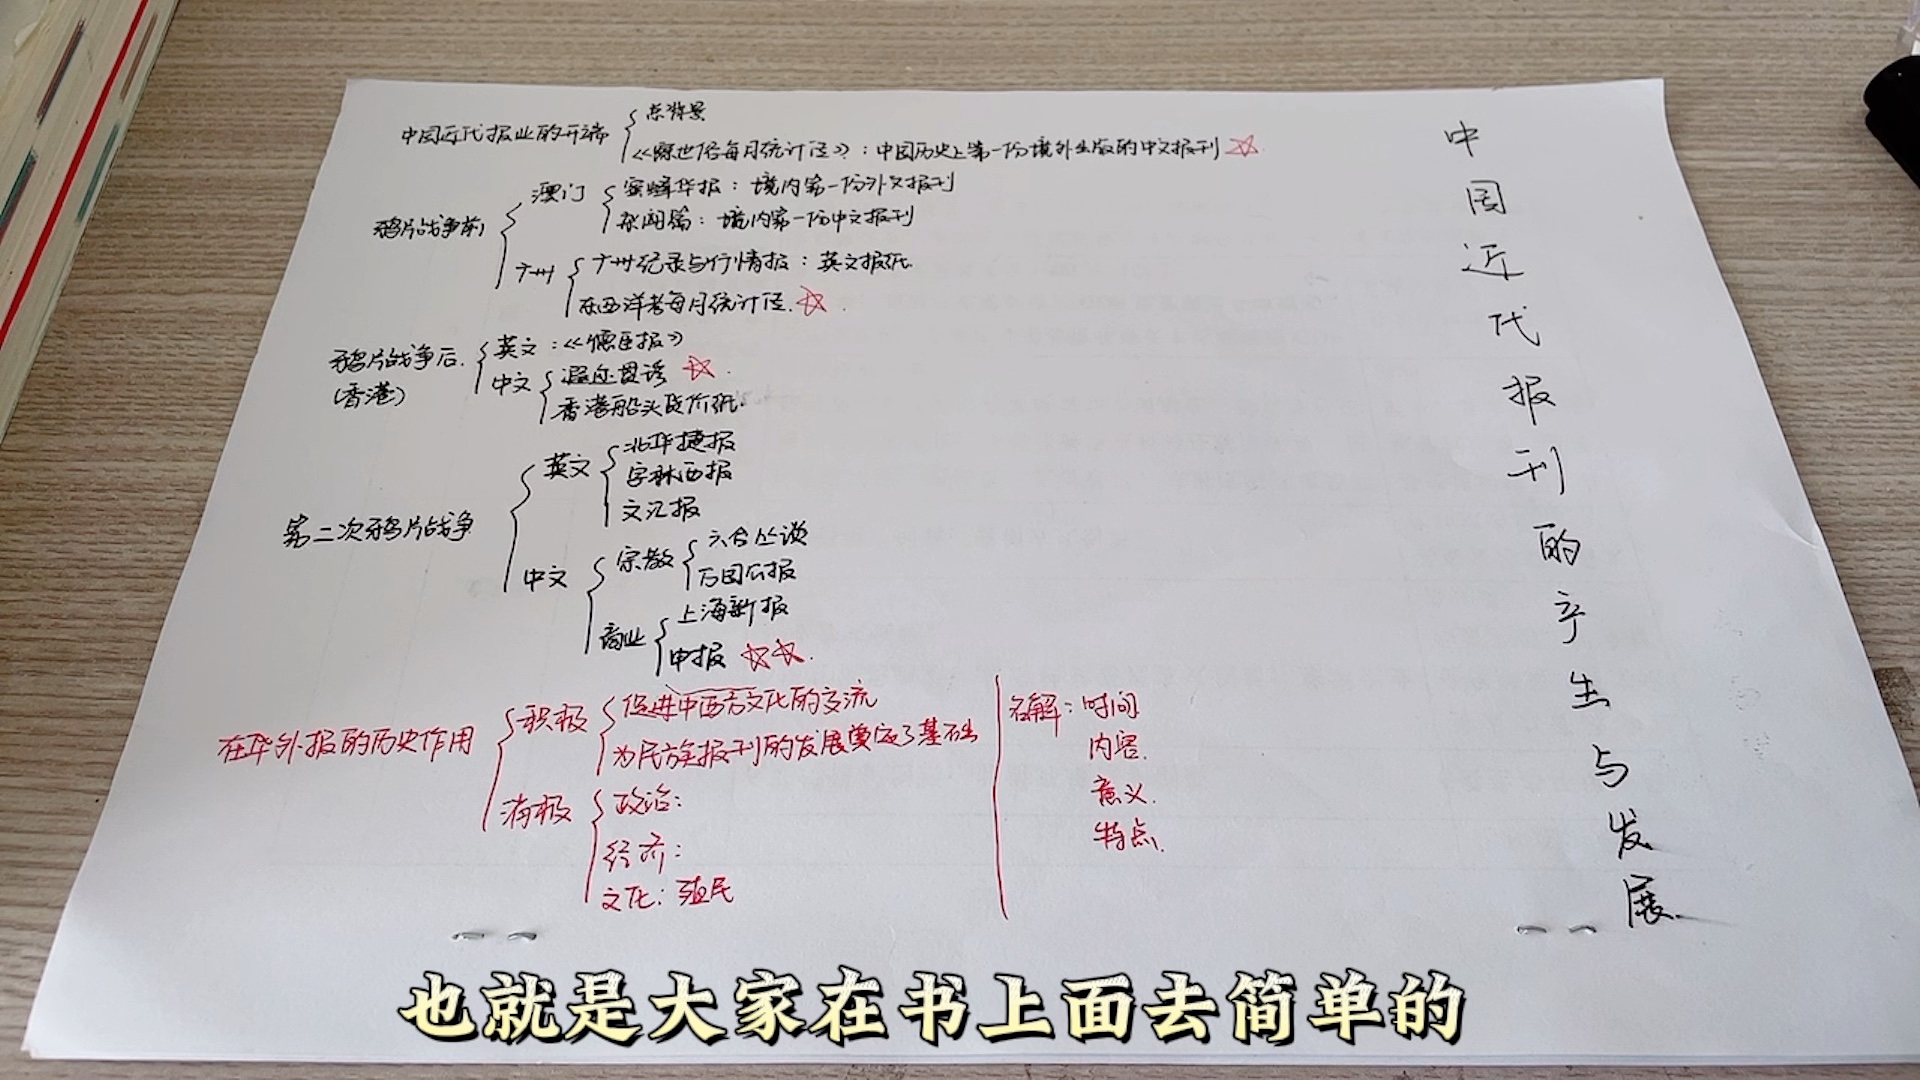 中国近代报业的开端
点背景
《察世俗每月统计传》：中国历史上第一份境外出版的中文报刊
鸦片战争前
澳门
蜜蜂华报：境内第一份外文报刊
杂闻篇：境内第一份中文报刊
广州
广州纪录与行情报：英文报纸
东西洋考每月统计传.
鸦片战争后.
(香港)
英文：《德臣报》
中文
遐迩贯珍
香港船头货价纸.
第二次鸦片战争
英文
北华捷报
字林西报
文汇报
中文
宗教
六合丛谈
万国公报
商业
上海新报
申报
在华外报的历史作用
积极
促进中西方文化的交流
为民族报刊的发展奠定了基础
消极
政治:
经济:
文化: 殖民
名解: 时间
内容.
意义.
特点.
中国近代报刊的产生与发展
也就是大家在书上面去简单的